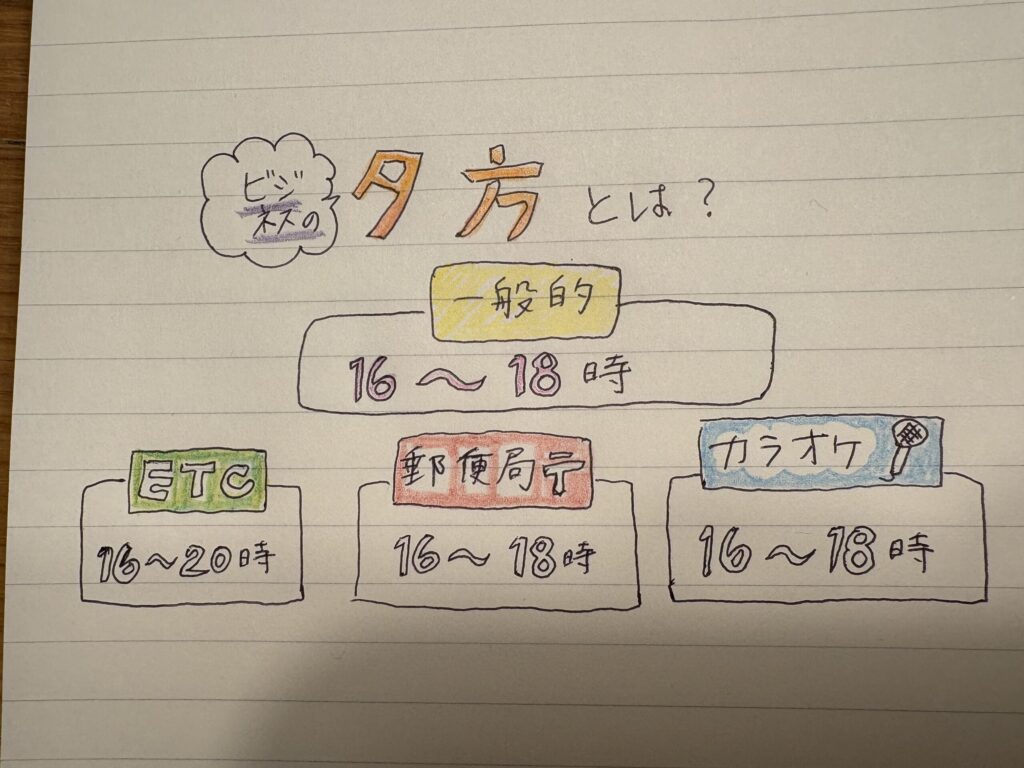 ビジ
ネスの
夕方とは?
一般的
16～18時
ETC
16～20時
郵便局〒
16～18時
カラオケ
16～18時